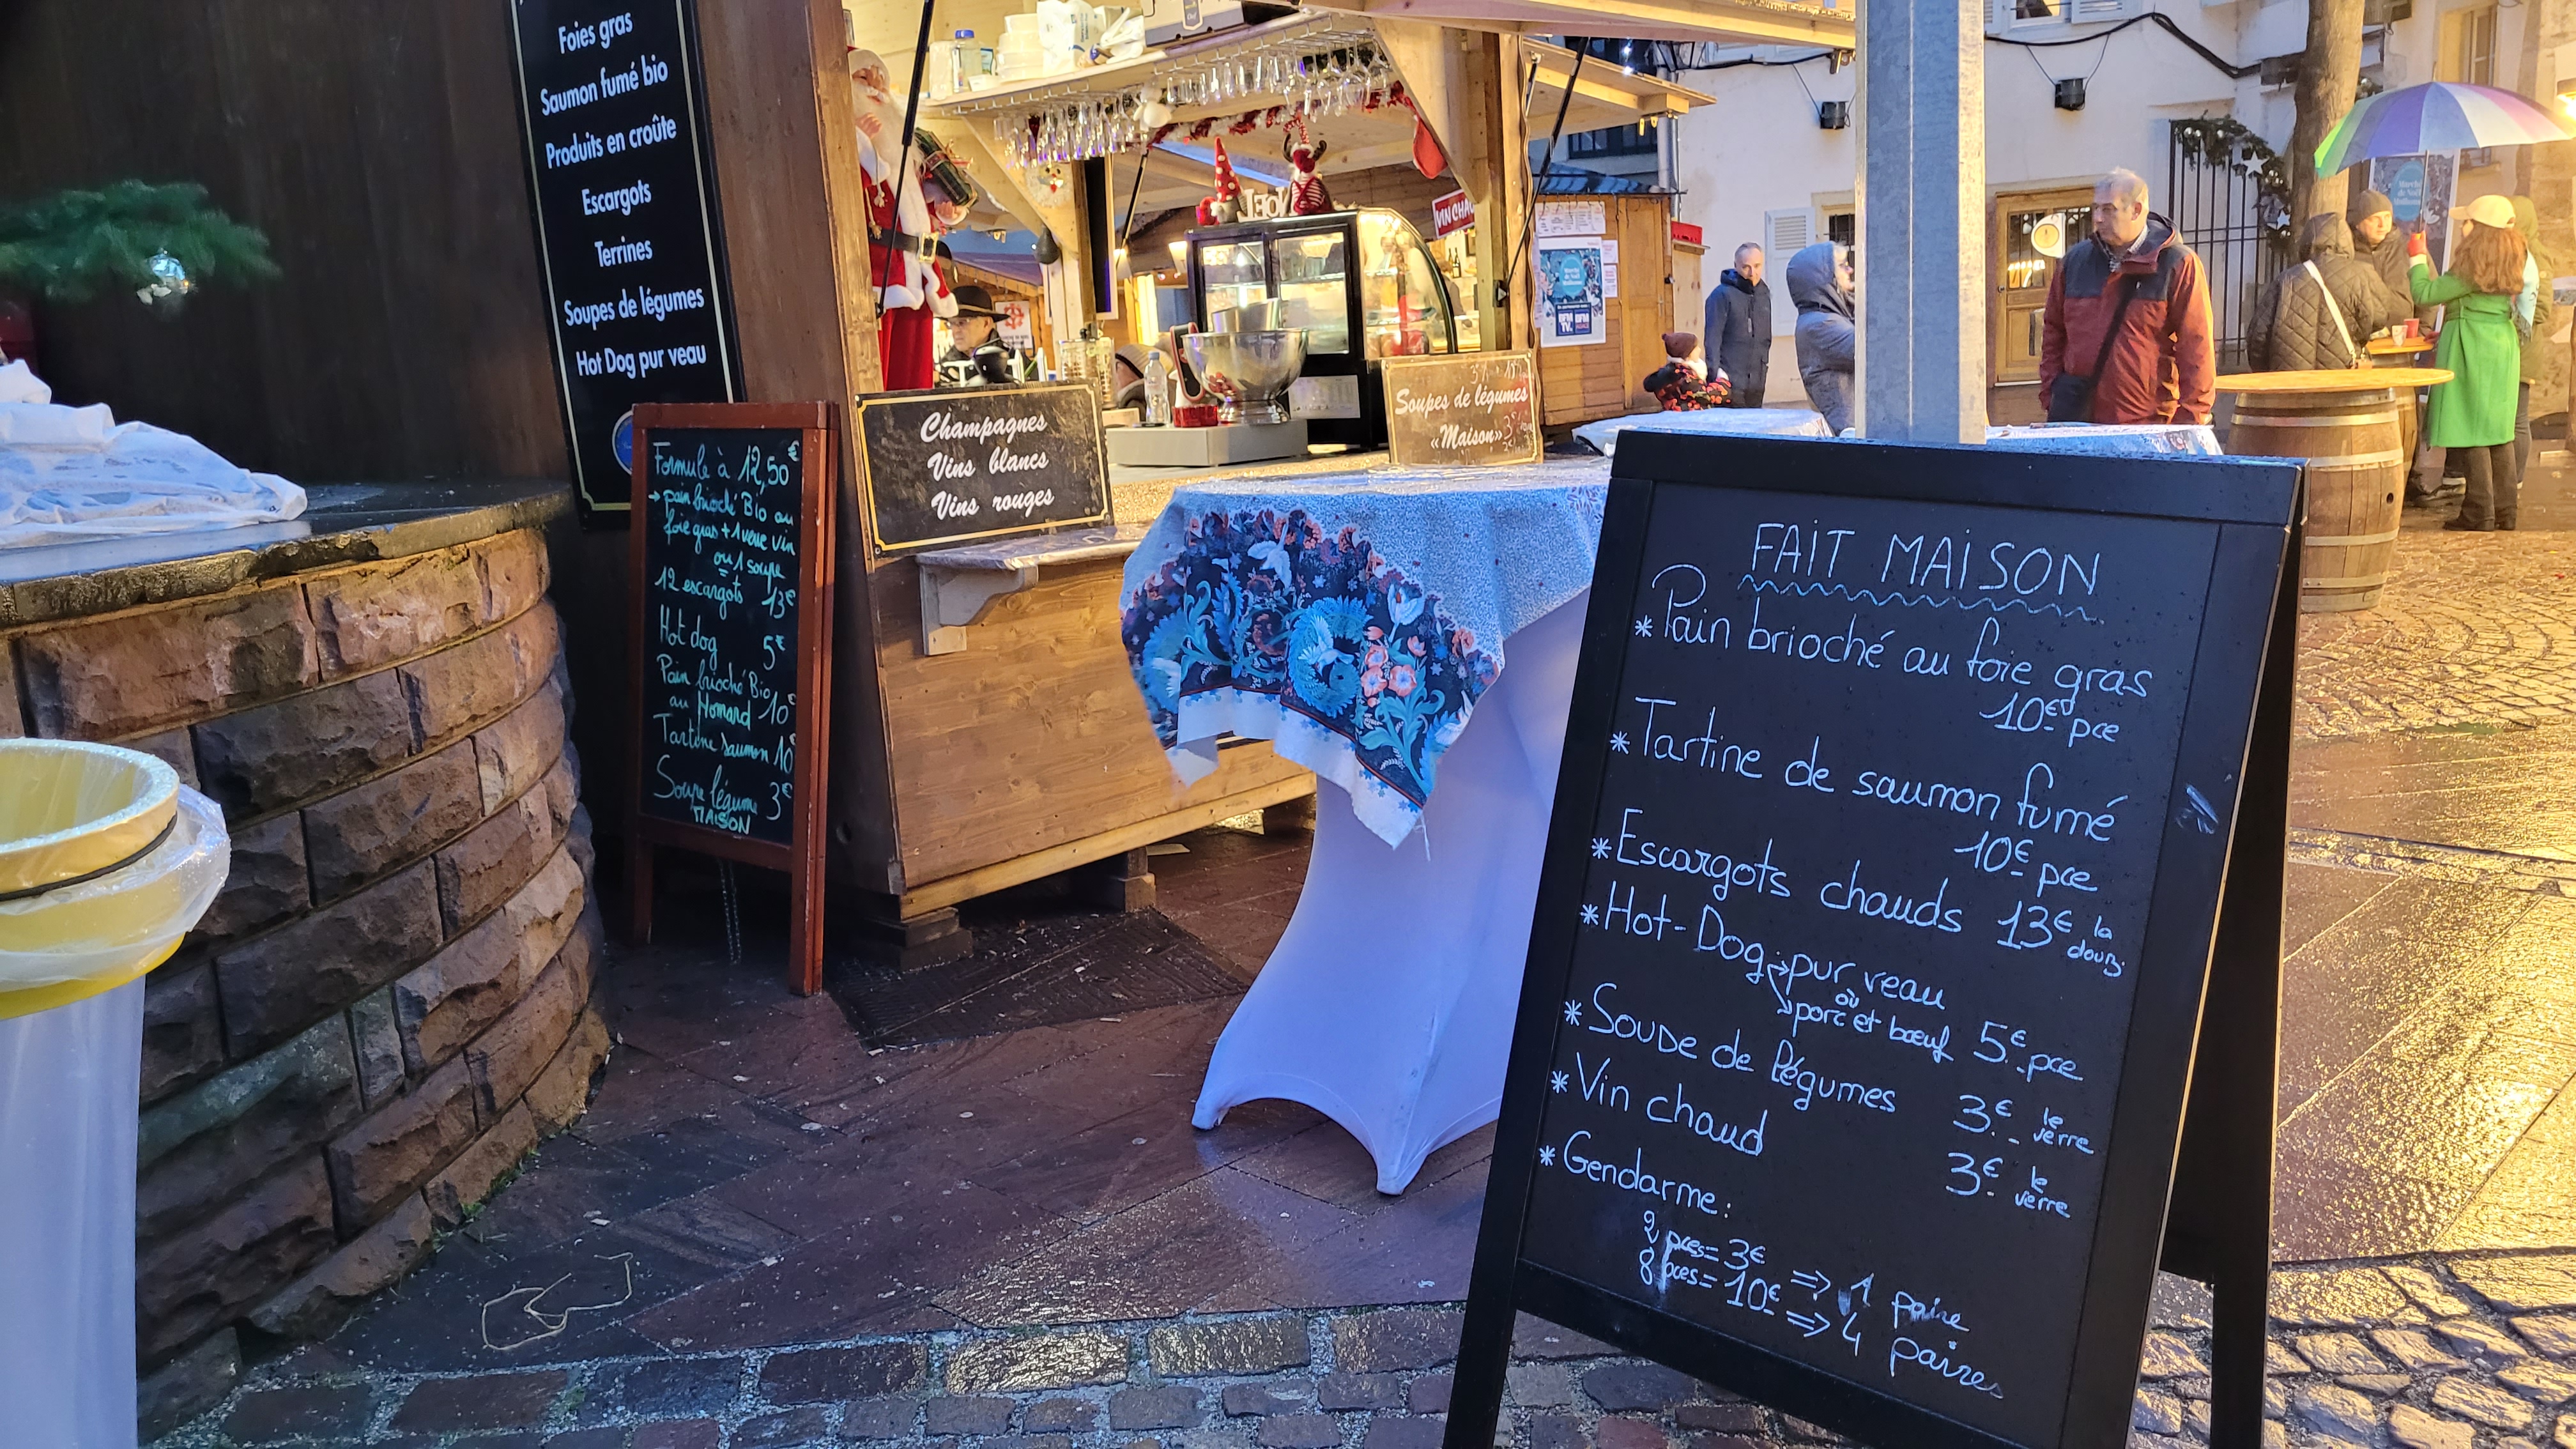 Foies gras
Saumon fumé bio
Produits en croûte
Escargots
Terrines
Soupes de légumes
Hot Dog pur veau
Formule à 12,50€
→ pain brioché Bio au
foie gras + 1 verre vin
ou 1 soupe
12 escargots 13€
Hot dog 5€
Pain brioché Bio
au Homard 10€
Tartine saumon 10€
Soupe légume 3€
MAISON
Champagnes
Vins blancs
Vins rouges
NOEL
VIN CHAUD
Soupes de légumes
«Maison» 3€
Marché
de Noël
Mulhouse
BFM
TV.
BFM
FAIT MAISON
* Pain brioché au foie gras
10€ pce
* Tartine de saumon fumé
10€ pce
* Escargots chauds 13€ la douz.
* Hot-Dog → pur veau
ou
→ porc et bœuf 5€ pce
* Soupe de légumes 3€ le verre
* Vin chaud 3€ le verre
* Gendarme :
2 pces = 3€ => 1 paire
8 pces = 10€ => 4 paires